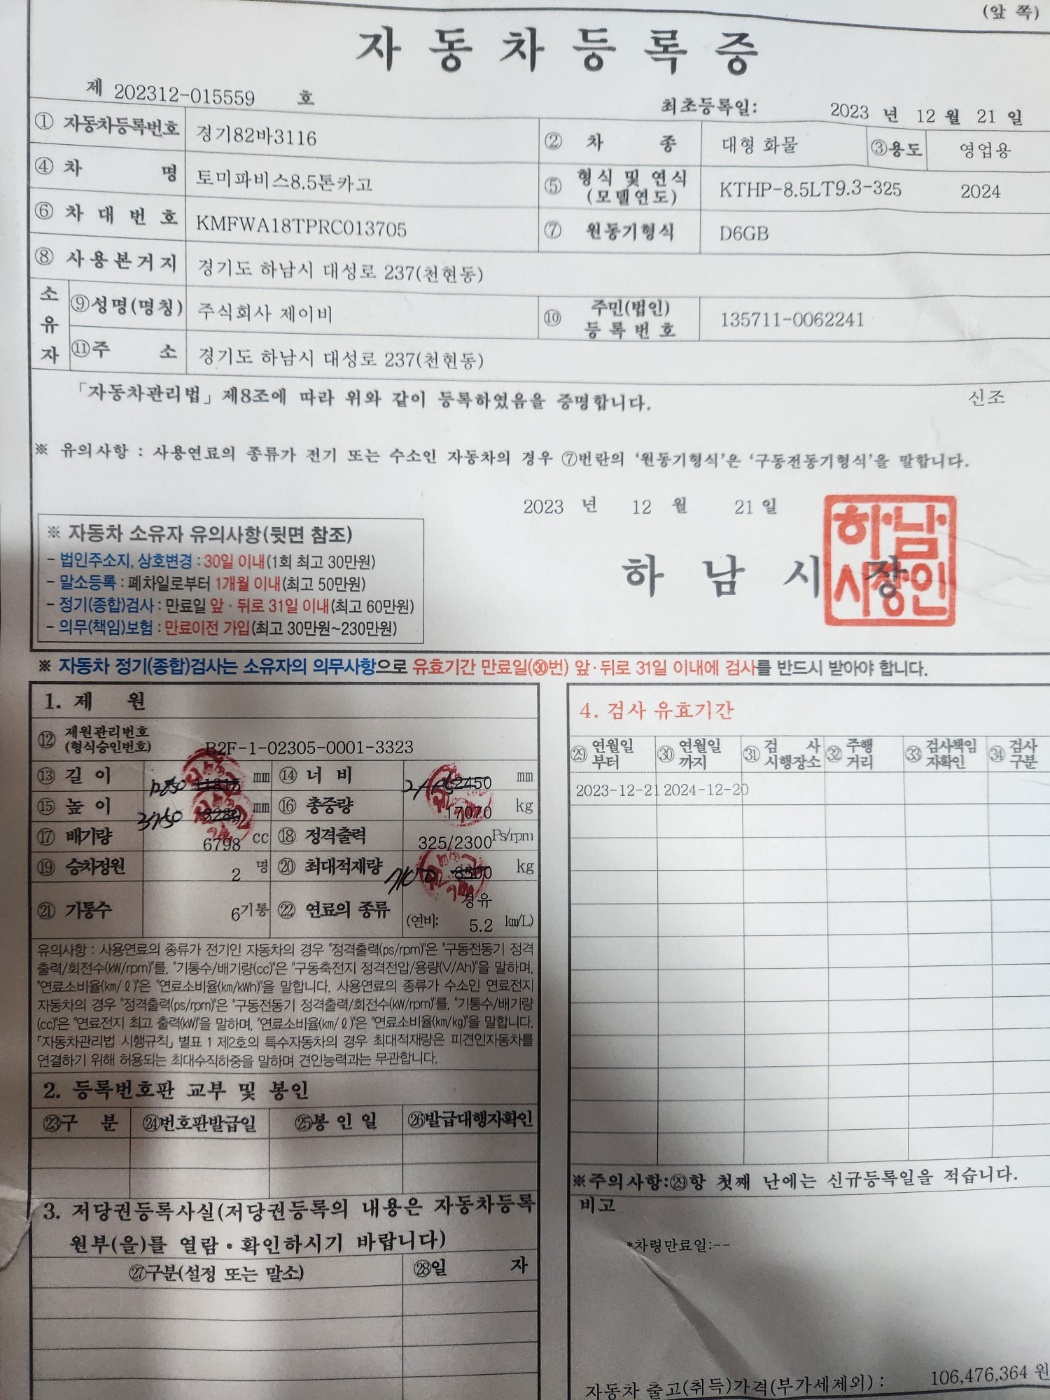 (앞 쪽)
자동차등록증
제 202312-015559 호
최초등록일: 2023 년 12 월 21 일
① 자동차등록번호 경기82바3116 ② 차 종 대형 화물 ③용도 영업용
④ 차 명 토미파비스8.5톤카고 ⑤ 형식 및 연식 (모델연도) KTHP-8.5LT9.3-325 2024
⑥ 차 대 번 호 KMFWA18TPRC013705 ⑦ 원동기형식 D6GB
⑧ 사 용 본 거 지 경기도 하남시 대성로 237(천현동)
소유자 ⑨성명(명칭) 주식회사 제이비 ⑩ 주민(법인) 등 록 번 호 135711-0062241
⑪주 소 경기도 하남시 대성로 237(천현동)
「자동차관리법」 제8조에 따라 위와 같이 등록하였음을 증명합니다. 신조
※ 유의사항 : 사용연료의 종류가 전기 또는 수소인 자동차의 경우 ⑦번란의 '원동기형식'은 '구동전동기형식'을 말합니다.
2023 년 12 월 21 일
※ 자동차 소유자 유의사항(뒷면 참조)
- 법인주소지, 상호변경 : 30일 이내(1회 최고 30만원)
- 말소등록 : 폐차일로부터 1개월 이내(최고 50만원)
- 정기(종합)검사 : 만료일 앞 · 뒤로 31일 이내(최고 60만원)
- 의무(책임)보험 : 만료이전 가입(최고 30만원~230만원)
하 남 시 장
하남시장인
※ 자동차 정기(종합)검사는 소유자의 의무사항으로 유효기간 만료일(㉚번) 앞·뒤로 31일 이내에 검사를 반드시 받아야 합니다.
1. 제 원
⑫ 제원관리번호 (형식승인번호) B2F-1-02305-0001-3323
⑬ 길 이 mm ⑭ 너 비 2450 mm
⑮ 높 이 3750 mm ⑯ 총중량 17070 kg
⑰ 배기량 6798 cc ⑱ 정격출력 325/2300 Ps/rpm
⑲ 승차정원 2 명 ⑳ 최대적재량 8500 kg
㉑ 기통수 6기통 ㉒ 연료의 종류 경유
(연비: 5.2 km/L)
유의사항 : 사용연료의 종류가 전기인 자동차의 경우 "정격출력(ps/rpm)"은 "구동전동기 정격
출력/회전수(kW/rpm)"를, "기통수/배기량(cc)"은 "구동축전지 정격전압/용량(V/Ah)"을 말하며,
"연료소비율(km/ℓ)"은 "연료소비율(km/kWh)"을 말합니다. 사용연료의 종류가 수소인 연료전지
자동차의 경우 "정격출력(ps/rpm)"은 "구동전동기 정격출력/회전수(kW/rpm)"를, "기통수/배기량
(cc)"은 "연료전지 최고 출력(kW)"을 말하며, "연료소비율(km/ℓ)"은 "연료소비율(km/kg)"을 말합니다.
「자동차관리법 시행규칙」 별표 1 제2호의 특수자동차의 경우 최대적재량은 피견인자동차를
연결하기 위해 허용되는 최대수직하중을 말하며 견인능력과는 무관합니다.
2. 등록번호판 교부 및 봉인
㉓구 분 ㉔번호판발급일 ㉕봉 인 일 ㉖발급대행자확인
3. 저당권등록사실(저당권등록의 내용은 자동차등록
원부(을)를 열람 · 확인하시기 바랍니다)
㉗구분(설정 또는 말소) ㉘일 자
4. 검사 유효기간
㉙ 연월일 부터 ㉚ 연월일 까지 ㉛ 검 사 시행장소 ㉜ 주행 거리 ㉝ 검사책임 자확인 ㉞ 검사 구분
2023-12-21 2024-12-20
※주의사항:㉙항 첫째 난에는 신규등록일을 적습니다.
비고
*차령만료일:--
자동차 출고(취득)가격(부가세제외) : 106,476,364 원